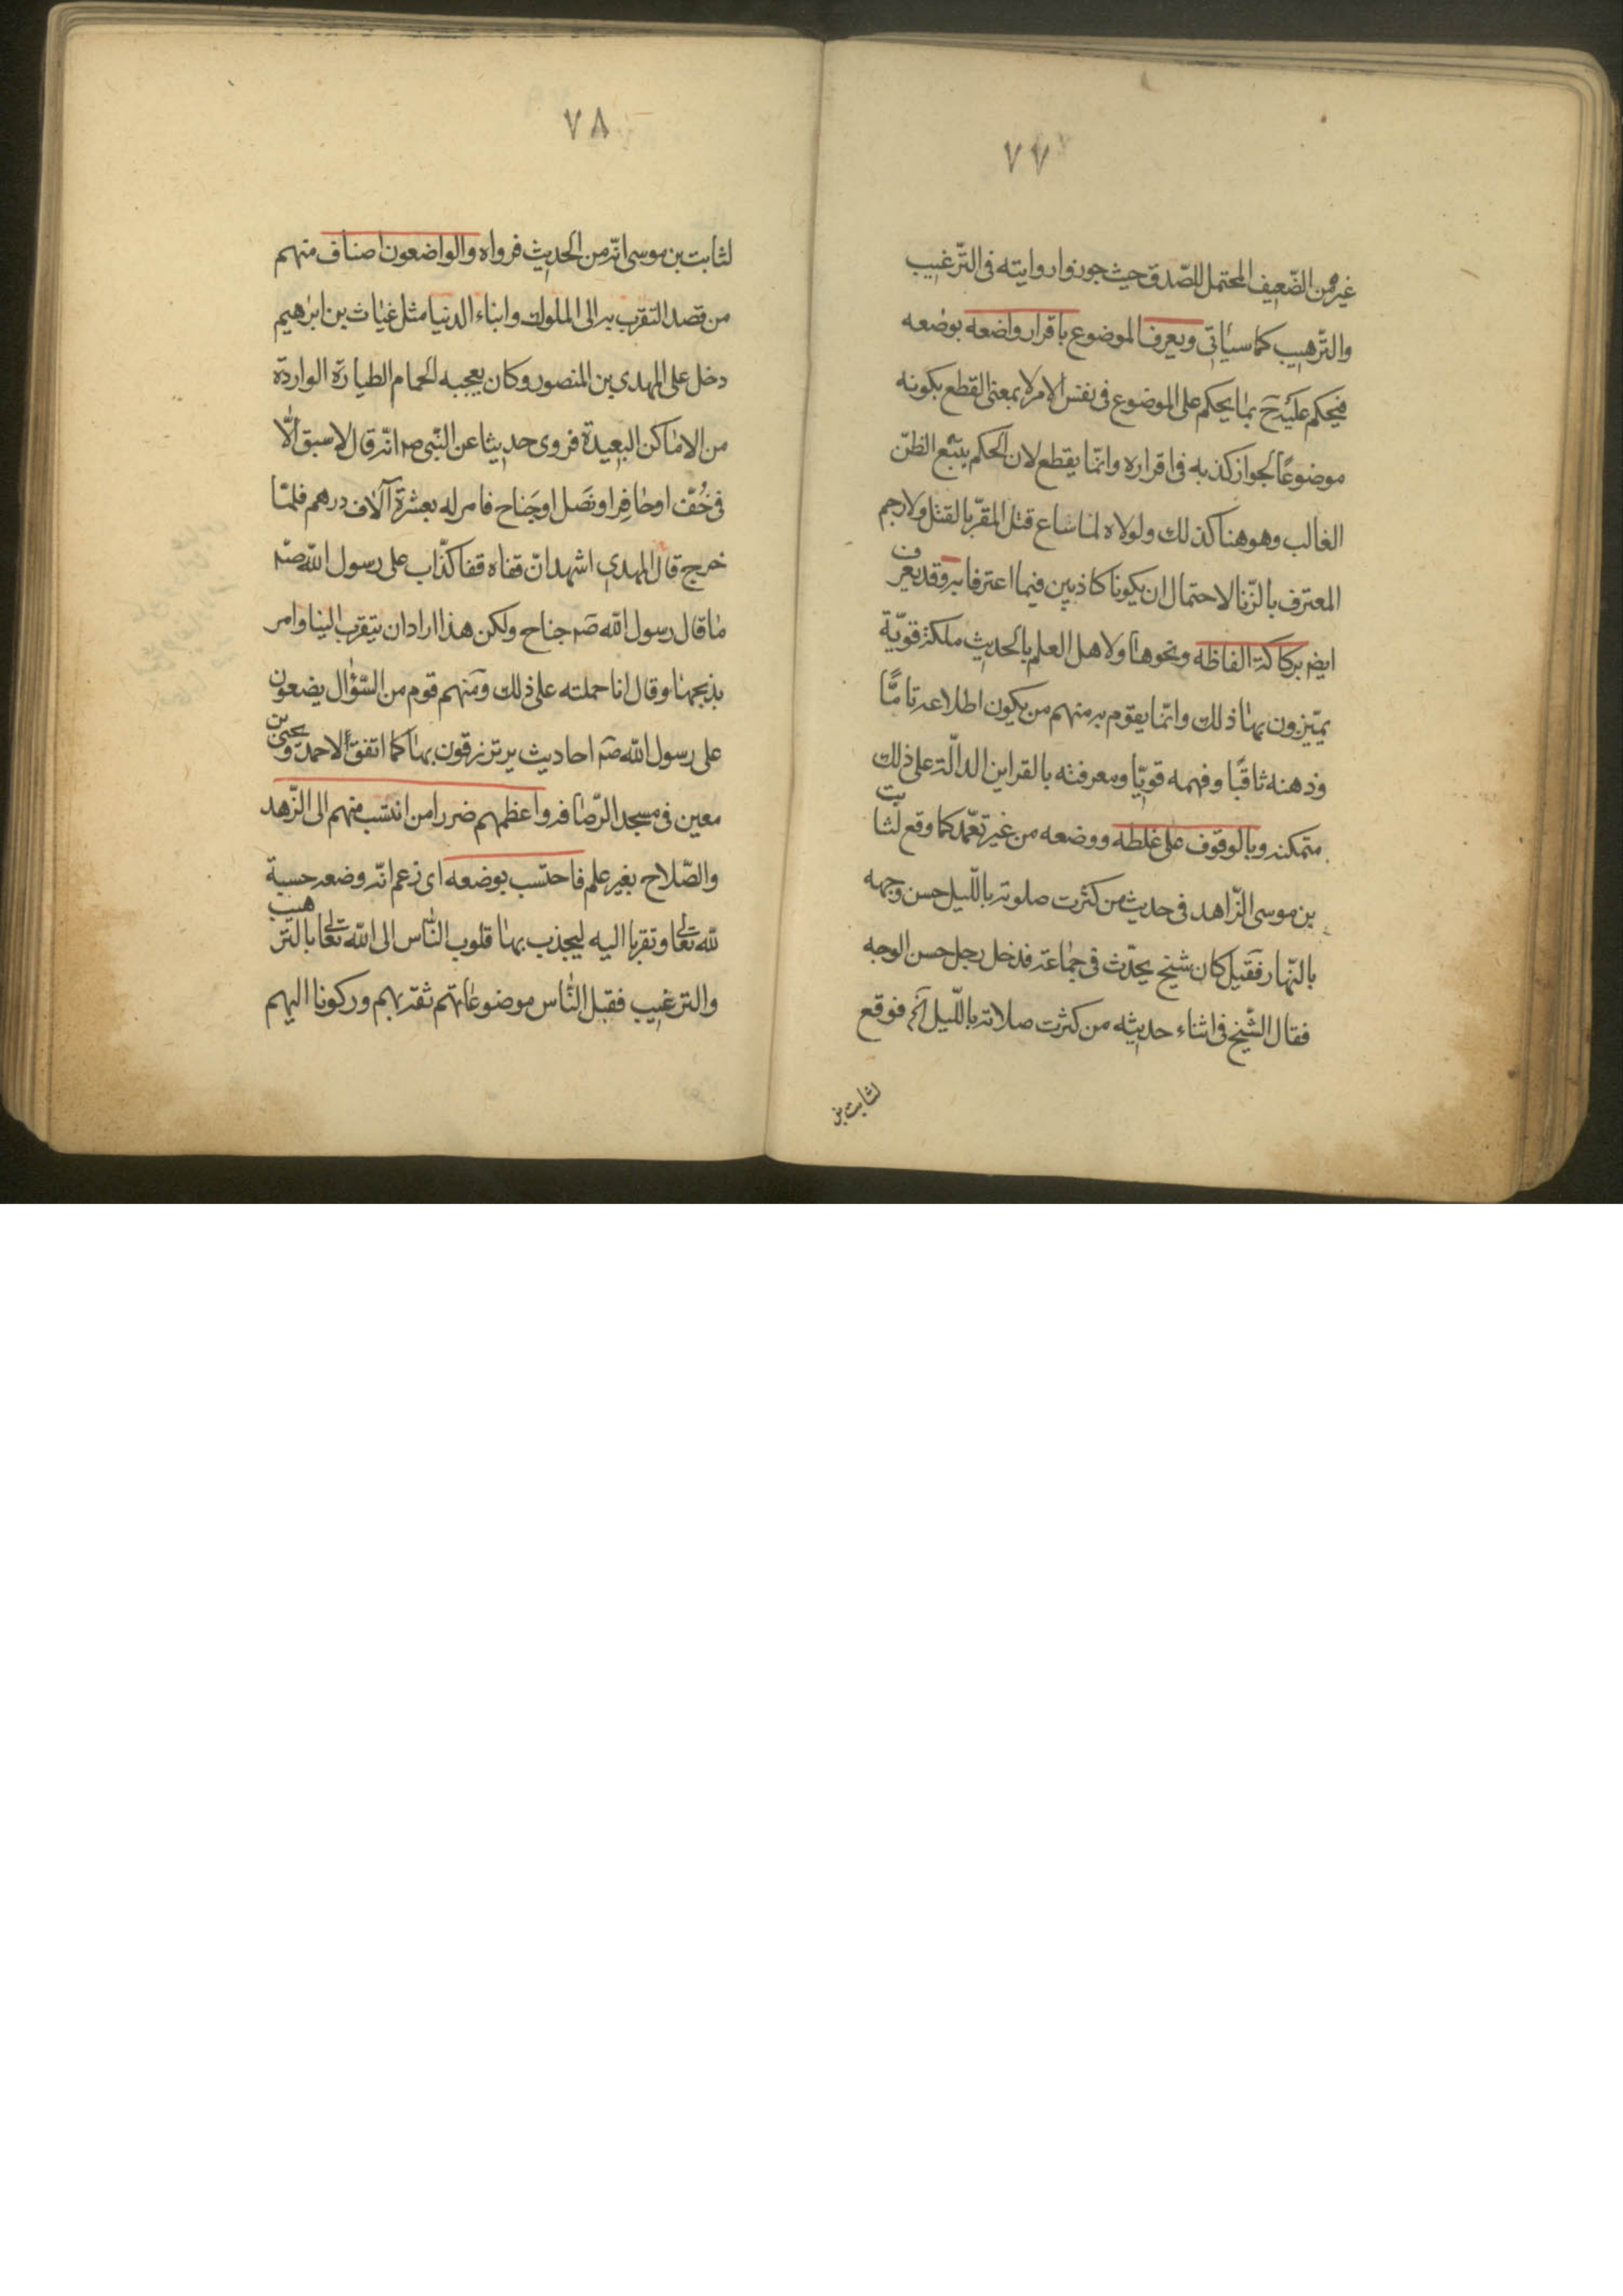 ٧٧
غيره من الضّعيف المحتمل للصّدق حيث جوزوا روايته فى التّرغيب
والتّرهيب كما سيأتى ويعرف الموضوع باقرار واضعه بوضعه
فيحكم عليه ح بما يحكم على الموضوع فى نفس الامر لا بمعنى القطع بكونه
موضوعًا لجواز كذبه فى اقراره وانّما يقطع لان الحكم يتبع الظنّ
الغالب وهو هنا كذلك ولولاه لما ساغ قتل المقرّ بالقتل ولا رجم
المعترف بالزّنا لاحتمال ان يكونا كاذبين فيما اعترفا به وقد يعرف
ايض بركاكة الفاظه ونحوها ولاهل العلم بالحديث ملكة قويّة
يميّزون بها ذلك وانّما يقوم به منهم من يكون اطلاعه تامًّا
وذهنه ثاقبًا وفهمه قويّا ومعرفته بالقراين الدالّة على ذلك
متمكنه وبالوقوف على غلطه ووضعه من غير تعمّد كما وقع لثابت
بن موسى الزّاهد فى حديث من كثرت صلوته باللّيل حسن وجهه
بالنّهار فقيل كان شيخ يحدّث فى جماعة فدخل رجل حسن الوجه
فقال الشّيخ فى اثناء حديثه من كثرت صلاته باللّيل الخ فوقع
لثابت بن
٧٨
لثابت بن موسى انّه من الحديث فرواه والواضعون اصناف منهم
من قصد التقرب به الى الملوك وابناء الدنيا مثل غياث بن ابرهيم
دخل على المهدى بن المنصور وكان يعجبه الحمام الطيارة الواردة
من الاماكن البعيدة فروى حديثا عن النّبى ص انّه قال لا سبق الّا
فى خُفّ او حافِر او نَصل او جَناح فامر له بعشرة آلاف درهم فلمّا
خرج قال المهدى اشهد انّ قفاه قفا كذّاب على رسول اللّه صم
ما قال رسول اللّه صم جناح ولكن هذا اراد ان يتقرب الينا وامر
بذبحها وقال انا حملته على ذلك ومنهم قوم من السّؤال يضعون
على رسول اللّه صم احاديث يرتزقون بها كما اتفق لاحمد ويحيى بن
معين فى مسجد الرّصافه واعظمهم ضررا من انتسب منهم الى الزّهد
والصّلاح بغير علم فاحتسب بوضعه اى زعم انّه وضعه حسبة
للّه تعالى وتقربا اليه ليجذب بها قلوب النّاس الى اللّه تعالى بالترهيب
والترغيب فقبل النّاس موضوعاتهم ثقة بهم وركونا اليهم